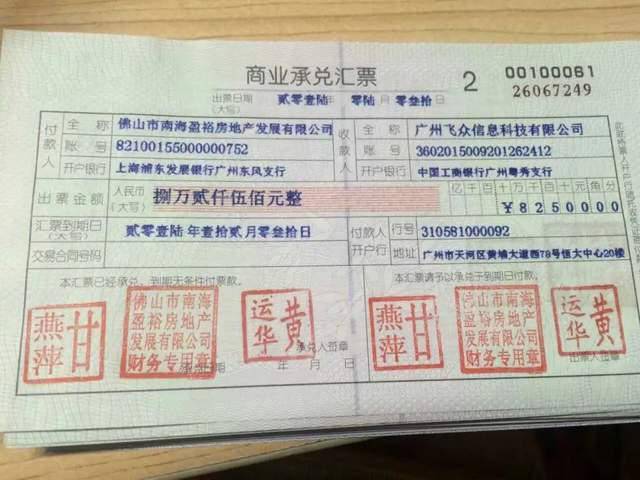 商业承兑汇票 2 00100061
26067249
出票日期(大写) 贰零壹陆 年 零陆 月 零叁拾 日
付款人 全称 佛山市南海盈裕房地产发展有限公司 收款人 全称 广州飞众信息科技有限公司
账号 82100155000000752 账号 3602015009201262412
开户银行 上海浦东发展银行广州东风支行 开户银行 中国工商银行广州粤秀支行
出票金额 人民币(大写) 捌万贰仟伍佰元整 亿千百十万千百十元角分
¥8250000
汇票到期日(大写) 贰零壹陆 年壹拾贰月零叁拾日 付款人开户行 行号 310581000092
交易合同号码 地址 广州市天河区黄埔大道西78号恒大中心20楼
本汇票已经承兑,到期无条件付款。 本汇票请予以承兑于到期日付款。
甘燕萍 佛山市南海盈裕房地产发展有限公司财务专用章 黄运华 甘燕萍 佛山市南海盈裕房地产发展有限公司财务专用章 黄运华
承兑人签章
承兑日期 年 月 日 出票人签章